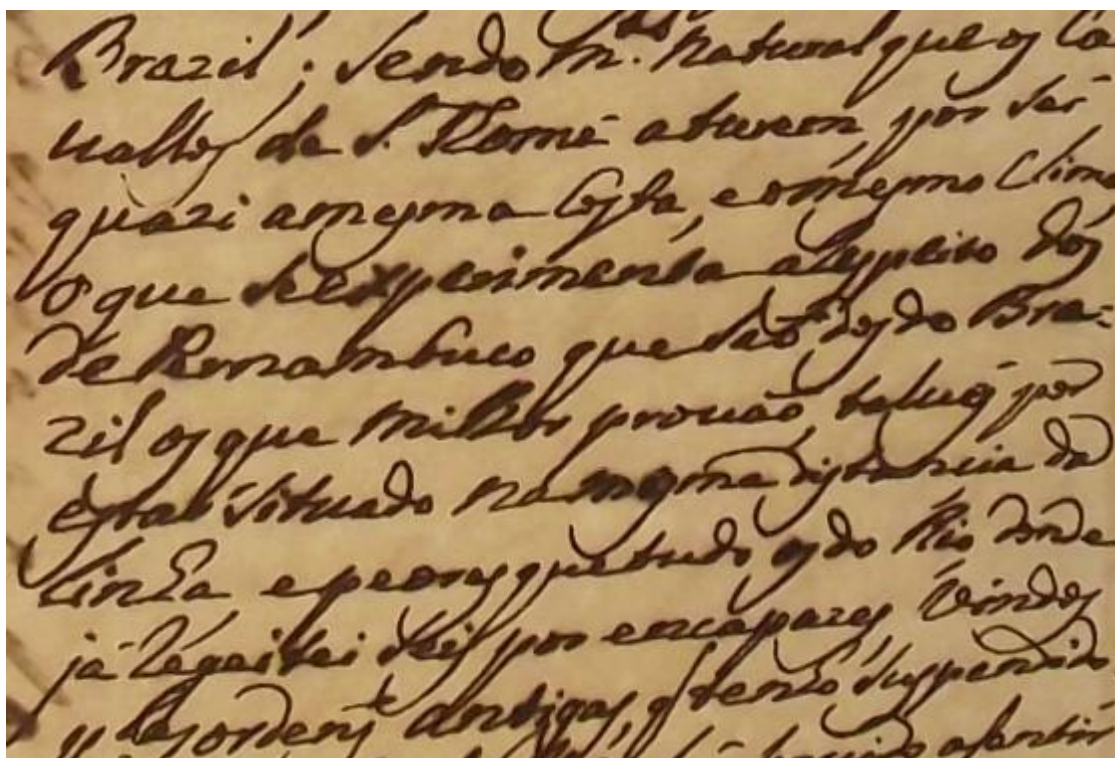 Brazil; Sendo m.to natural que os Ca
vallos de S. Thomé aturem, por ser
quazi a mesma Costa, e o mesmo Clima
o que se experimenta a respeito dos
de Pernambuco que são dos do Bra-
zil os que milhor provão, talves por
estar situado na mesma distancia da
Linha, e peores que tudo os do Rio donde
já regeitei seis por encapazes vindos
ordens antigas, q tenho suspendido